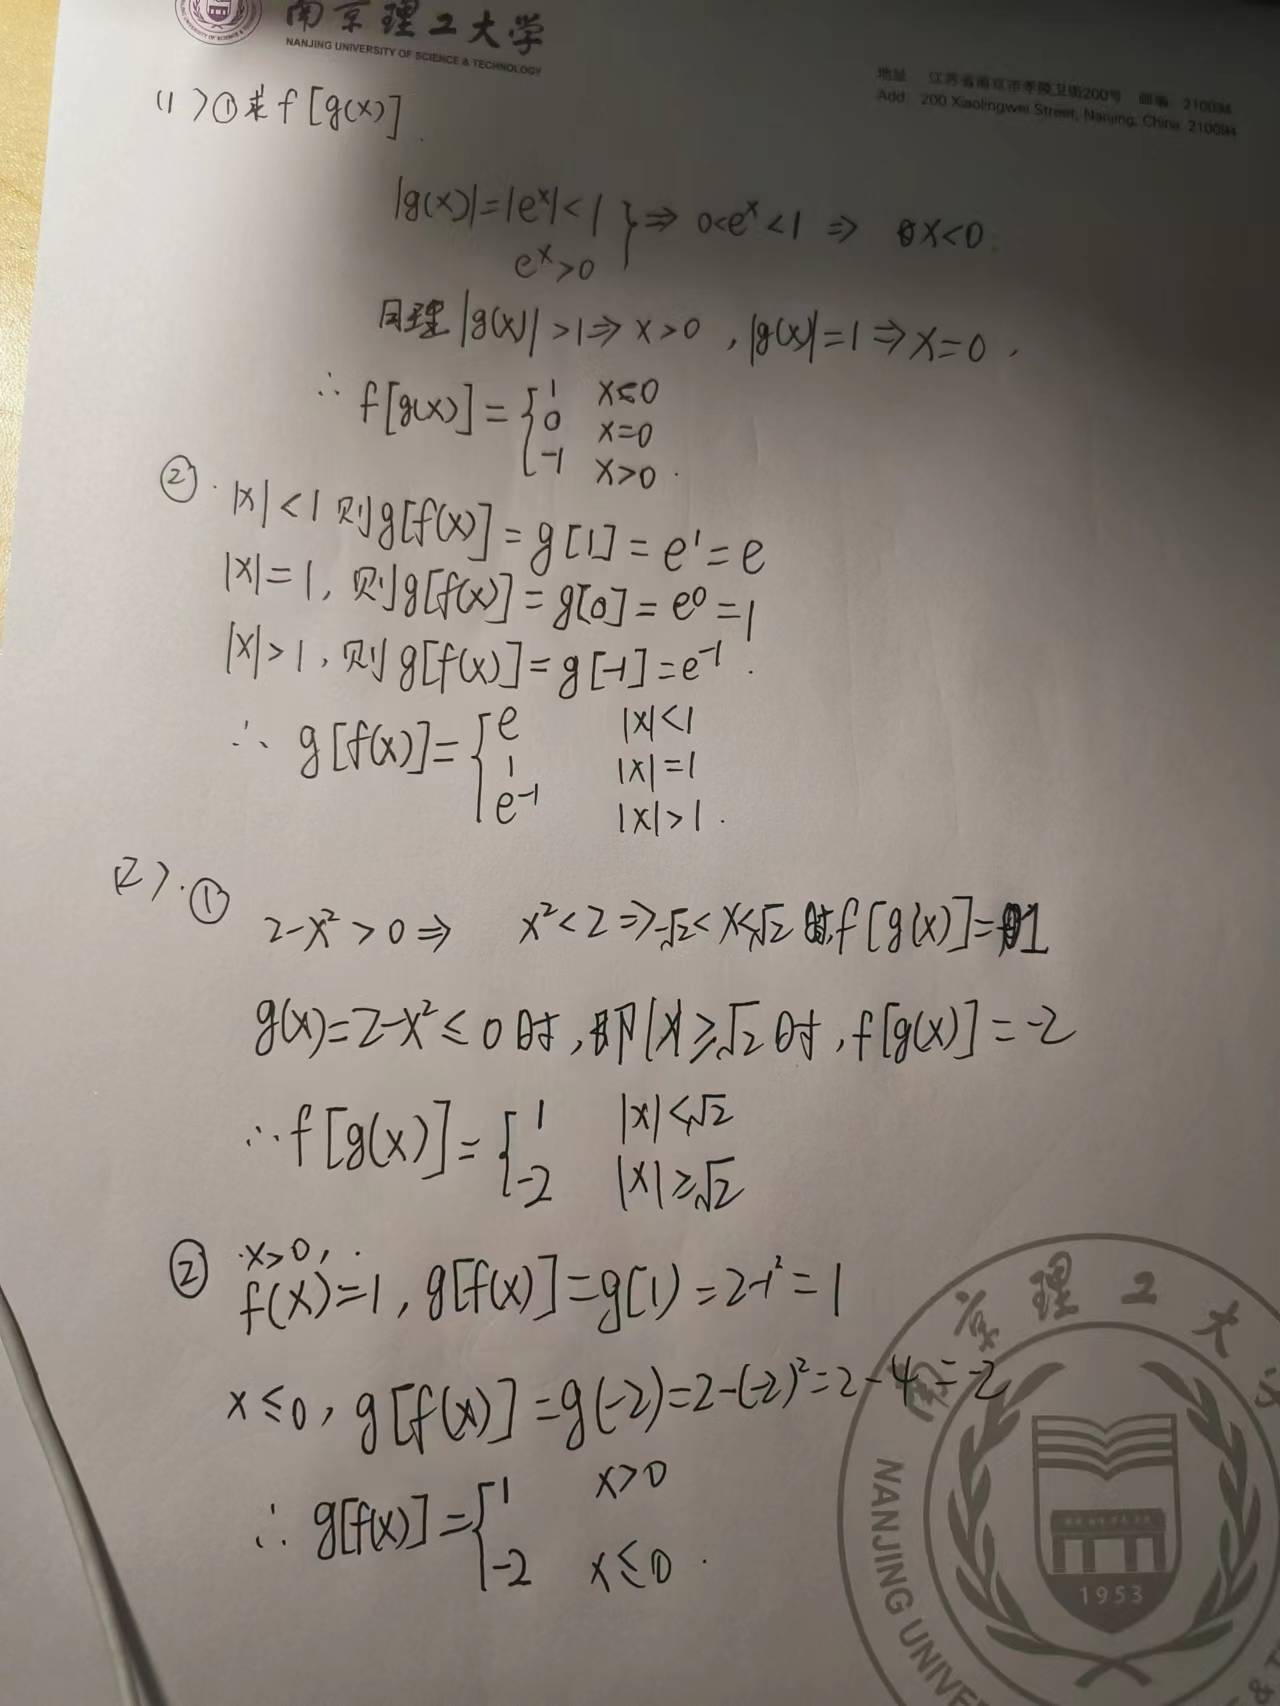 南京理工大学
NANJING UNIVERSITY OF SCIENCE & TECHNOLOGY
地址 江苏省南京市孝陵卫街200号 邮编 210094
Add 200 Xiaolingwei Street, Nanjing, China 210094
(1)①求f[g(x)]
|g(x)|=|eˣ|<1
eˣ>0 } ⇒ 0<eˣ<1 ⇒ x<0
同理|g(x)|>1⇒x>0,|g(x)|=1⇒x=0.
∴ f[g(x)]={1 x<0
0 x=0
-1 x>0.
②.|x|<1则g[f(x)]=g[1]=e¹=e
|x|=1,则g[f(x)]=g[0]=e⁰=1
|x|>1,则g[f(x)]=g[-1]=e⁻¹.
∴ g[f(x)]={e |x|<1
1 |x|=1
e⁻¹ |x|>1.
(2).①
2-x²>0⇒ x²<2⇒-√2<x<√2时,f[g(x)]=1
g(x)=2-x²≤0时,即|x|≥√2时,f[g(x)]=-2
∴f[g(x)]={1 |x|<√2
-2 |x|≥√2
② x>0,
f(x)=1,g[f(x)]=g(1)=2-1²=1
x≤0,g[f(x)]=g(-2)=2-(-2)²=2-4=-2
∴ g[f(x)]={1 x>0
-2 x≤0.
南京理工大
1953
NANJING UNIVE